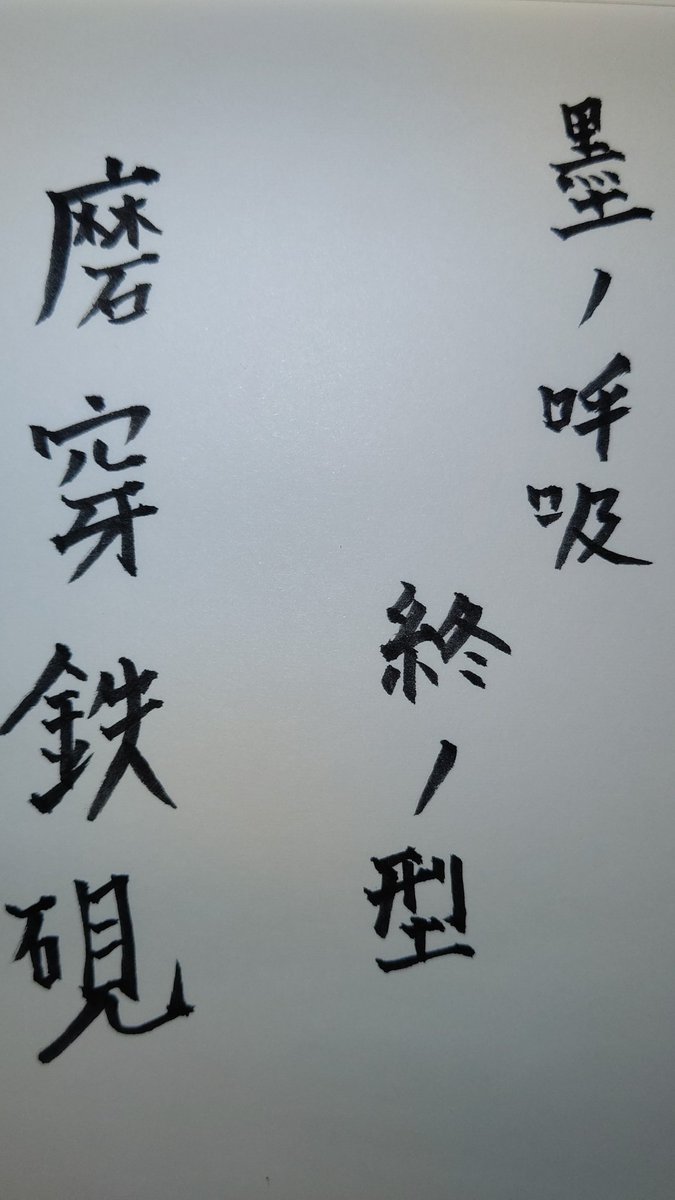 墨ノ呼吸
終ノ型
磨穿鉄硯